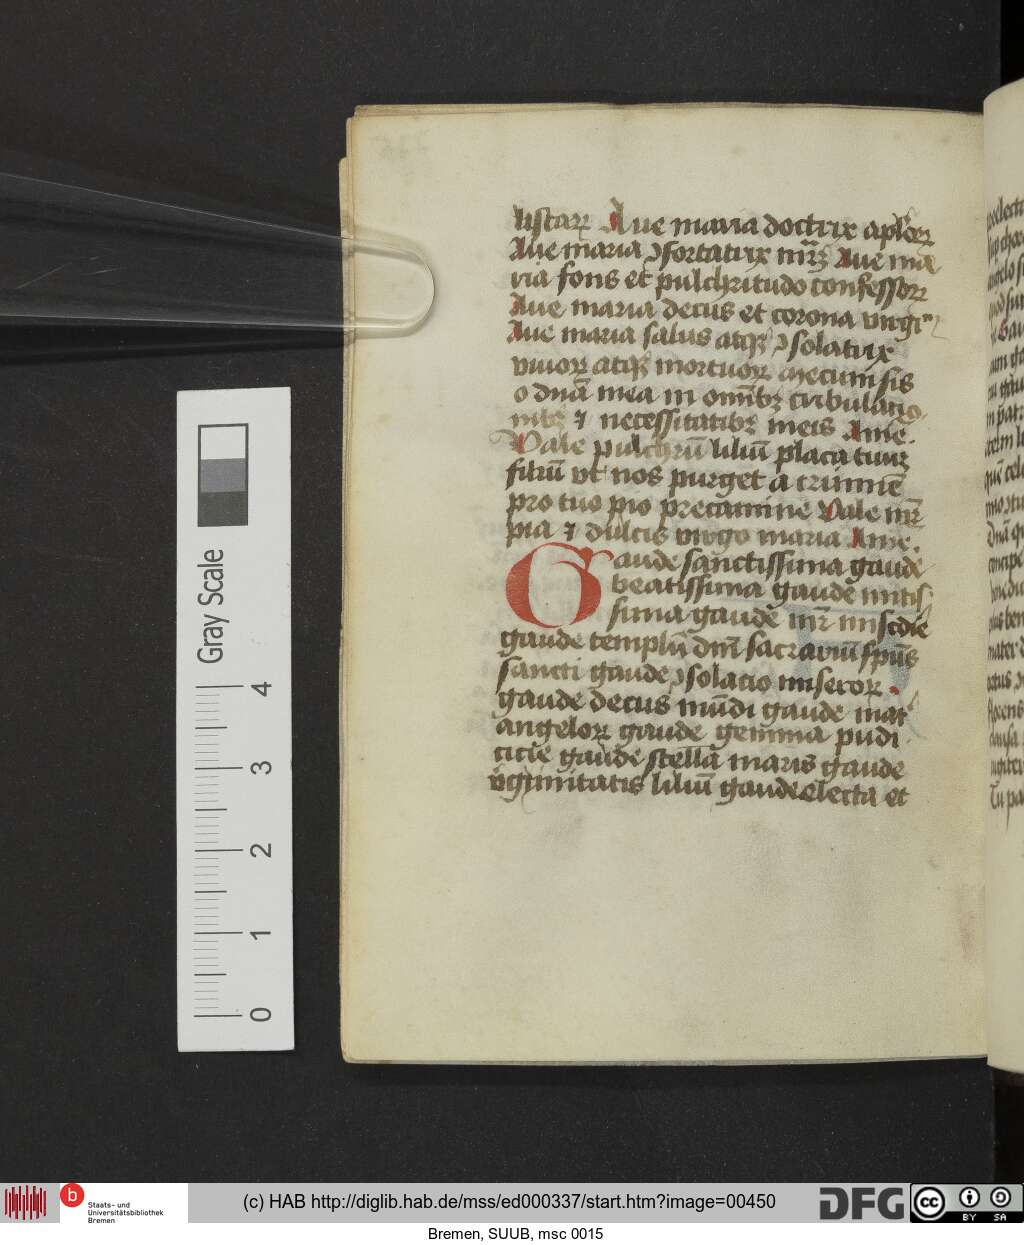 listarꝝ Aue maria doctrix aplorꝝ
Aue maria ꝯfortatrix mr̄ꝫ Aue ma
ria fons et pulchritudo confessorꝝ
Aue maria decus et corona virgiⁿꝫ
Aue maria salus atqꝫ ꝯsolatrix
viuorꝝ atqꝫ mortuorꝝ mecum sis
o dn̄a mea in om̄ibꝫ tribulatio
nibꝫ ⁊ necessitatibꝫ meis Ame.
Vale pulchrū liliū placa tuuꝫ
filiū vt nos purget a crimine
pro tuo pio precamine Vale mr̄
pia ⁊ dulcis virgo maria Ame.
Gaude sanctissima gaude
beatissima gaude mitis
sima gaude mr̄ mi͞scdie
gaude templū dn̄i sacrariū spūs
sancti gaude ꝯsolatio miserorꝝ.
gaude decus mūdi gaude mat͛
angelorꝝ gaude gemma pudi
citie gaude stella maris gaude
v͛ginitatis liliū gaude electa et
Gray Scale
4
3
2
1
0
Staats- und
Universitätsbibliothek
Bremen
(c) HAB http://diglib.hab.de/mss/ed000337/start.htm?image=00450
DFG
cc
BY SA
Bremen, SUUB, msc 0015